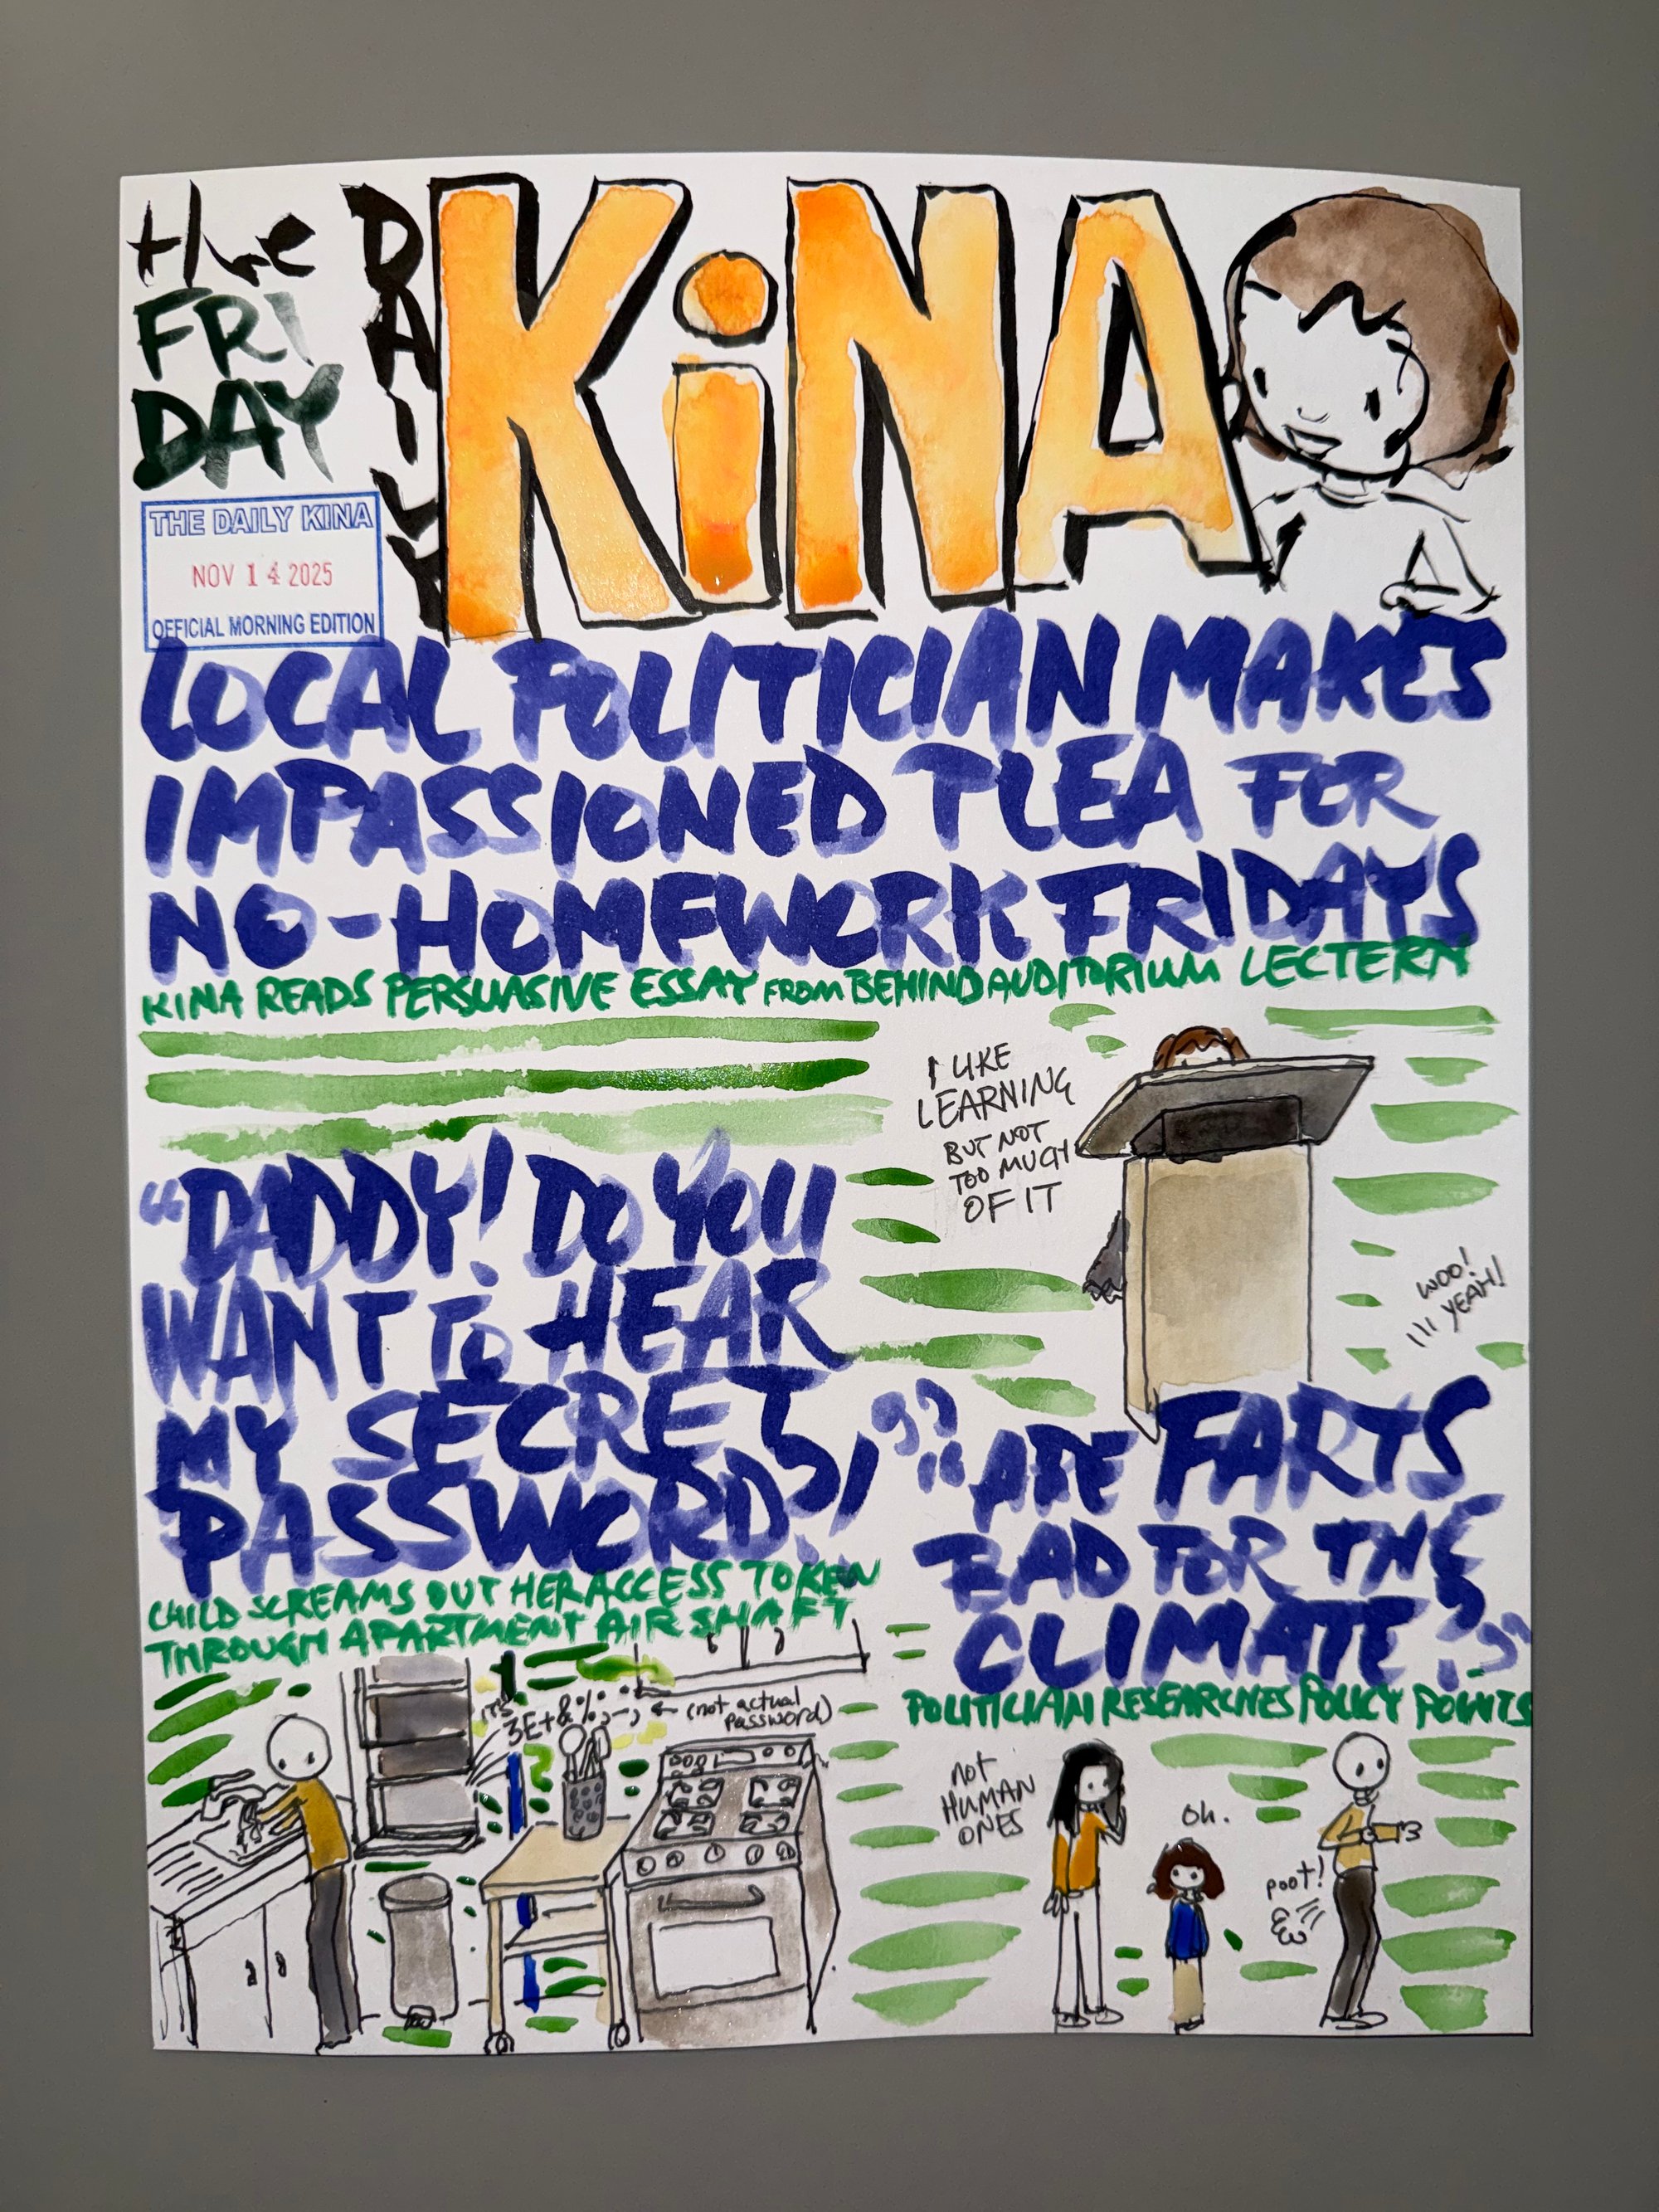 the
FRI
DAY
DAILY
KiNA
THE DAILY KINA
NOV 14 2025
OFFICIAL MORNING EDITION
LOCAL POLITICIAN MAKES
IMPASSIONED PLEA FOR
NO-HOMEWORK FRIDAYS
KINA READS PERSUASIVE ESSAY FROM BEHIND AUDITORIUM LECTERN
I LIKE
LEARNING
BUT NOT
TOO MUCH
OF IT
WOO!
YEAH!
"DADDY! DO YOU
WANT TO HEAR
MY SECRET
PASSWORD?!"
CHILD SCREAMS OUT HER ACCESS TOKEN
THROUGH APARTMENT AIR SHAFT
IT'S
3E+&%;-; ← (not actual
password)
"ARE FARTS
BAD FOR THE
CLIMATE?"
POLITICIAN RESEARCHES POLICY POINTS
not
HUMAN
ONES
oh.
poot!